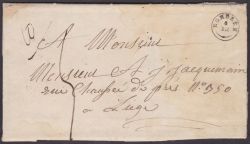 A Monsieur
Monsieur A J Jacquemain
rue Chaussée de prés N° 950
a Liége